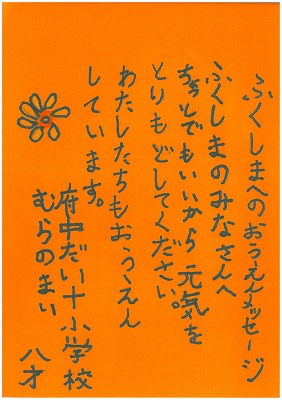 ふくしまへのおうえんメッセージ
ふくしまのみなさんへ
ちょっとでもいいから元気を
とりもどしてください。
わたしたちもおうえん
しています。
府中だい十小学校
むらのまい
八才